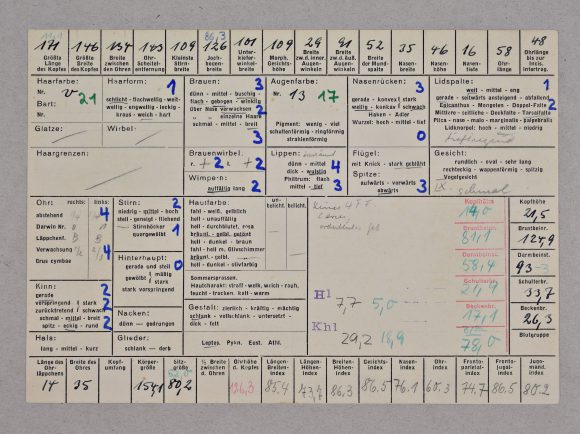 171 146 134 143 109 86,3 126 101 109 29 91 52 46 16 58 48
Größte Länge des Kopfes
Größte Breite des Kopfes
Breite zwischen den Ohren
Ohr-Scheitelentfernung
Kleinste Stirnbreite
Jochbogenbreite
Unterkieferwinkelbreite
Morph. Gesichtshöhe
Breite zw. d. inner. Augenwinkeln
Breite zw. d. äuß. Augenwinkeln
Breite der Mundspalte
Nasenbreite
Nasenhöhe
Nasentiefe
Ohrlänge
Haarfarbe:
Nr. V 21
Bart:
Nr.
Glatze:
Haarform: 1
schlicht - flachwellig - weitwellig - engwellig - lockig - kraus - weich - hart
Wirbel:
Haargrenzen:
Brauen: 3
dünn - mittel - buschig
flach - gebogen - winklig
über Nase verwachsen 2
einzelne Haare
schmal - mittel - breit
3
Brauenwirbel.
r. + 2 l. + 2
Wimpern:
auffällig lang 2
Augenfarbe:
Nr. 13 17
Pigment: wenig - viel
schattenförmig - ringförmig
strahlenförmig
Lippen:
dünn - mittel 4
dick - wulstig
Philtrum: flach
mittel - tief 3
Nasenrücken: 3
gerade - konvex stark
wellig - konkav schwach
Haken - Adler
Wurzel: hoch - mittel - tief
0
Flügel:
mit Knick - stark gebläht
Spitze:
aufwärts - vorwärts
abwärts 3
Lidspalte: 1
weit - mittel - eng
gerade - seitwärts ansteigend - abfallend
Epicanthus - Mongolen - Doppel-Falte 2
Mittlere - seitliche - Deckfalte - Tarsalfalte
Plica - naso - malo - marginalis/parallelis
Lidknorpel: hoch - mittel - niedrig
Gesicht:
rundlich - oval - sehr lang
rechteckig - wappenförmig - spitzig
Vogelgesicht
schmal
Ohr: rechts: links:
abstehend 4
Darwin Nr.
Läppchenf. B B
Verwachsung 4
Crus cymbae
Kinn: 2
gerade
vorspringend stark 2
zurücktretend schwach
schmal - mittel - breit 2
spitz - eckig - rund 2
Hals:
lang - mittel - kurz
Stirn: 2
niedrig - mittel - hoch
steil - geneigt - fliehend
Stirnhöcker
quergewölbt 1
Hinterhaupt: 0
gerade und steil
gewölbt mäßig stark
stark vorspringend
Nacken:
dünn — gedrungen
Glieder:
schlank — derb
Hautfarbe: unbelicht. belicht.
fahl - weiß, gelblich
hell - unauffällig
hell - durchblutet, rosa
bräunl. - gelbl. getönt
hell - dunkel - braun
fahl - hell m. Olivschimmer
bräunl. - gelb
hell - dunkel - olivfarbig
Sommersprossen.
Hautcharakt: straff - welk, weich - rauh,
feucht - trocken, kalt - warm
Gestalt: zierlich - kräftig - mächtig
schlank - vollschlank - untersetzt -
dick - fett
Leptos. Pykn. Eust. Athl.
Hl
7,7 5,0
Khl
29,2 18,9
Kopfhöhe 21,5
Brustbeinst. 124,9
Darmbeinst. 93
Schulterbr. 33,7
Beckenbr. 26,3
Blutgruppe
Länge des Ohrläppchens 14
Breite des Ohres 35
Kopfumfang
Körpergröße
Sitzgröße 52,0 80,2
½ Breite zwisch. d. Ohren
Größhöhe d. Kopfes
Längen-Breiten-index 85.4
Längen-Höhen-index
Breiten-Höhen-index 86.3
Gesichtsindex 86.5
Nasenindex 76.1
Ohrindex 60.3
Frontoparietalindex 74.7
Frontojugalindex 86.5
Jugomand.index 80.2